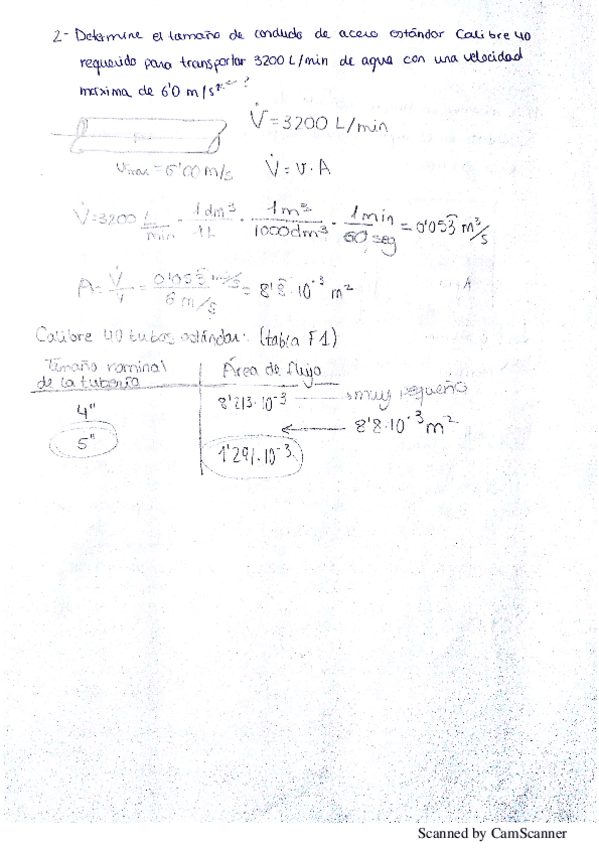 2- Determine el tamaño de conducto de acero estándar Calibre 40
requerido para transportar 3200 L/min de agua con una velocidad
máxima de 6'0 m/s ← ?
V̇ = 3200 L/min
vmax = 6'00 m/s V̇ = v · A
V̇ = 3200 L/min · 1 dm³/1L · 1 m³/1000 dm³ · 1 min/60 seg = 0'053̂ m³/s
A = V̇/v = 0'053̂ m³/s / 6 m/s = 8'8̂ · 10⁻³ m²
A
Calibre 40 tubos estándar: (tabla F1)
Tamaño nominal Área de flujo
de la tubería
4" 8'213·10⁻³ → muy pequeño
← 8'8·10⁻³ m²
5" 1'291·10⁻³
Scanned by CamScanner